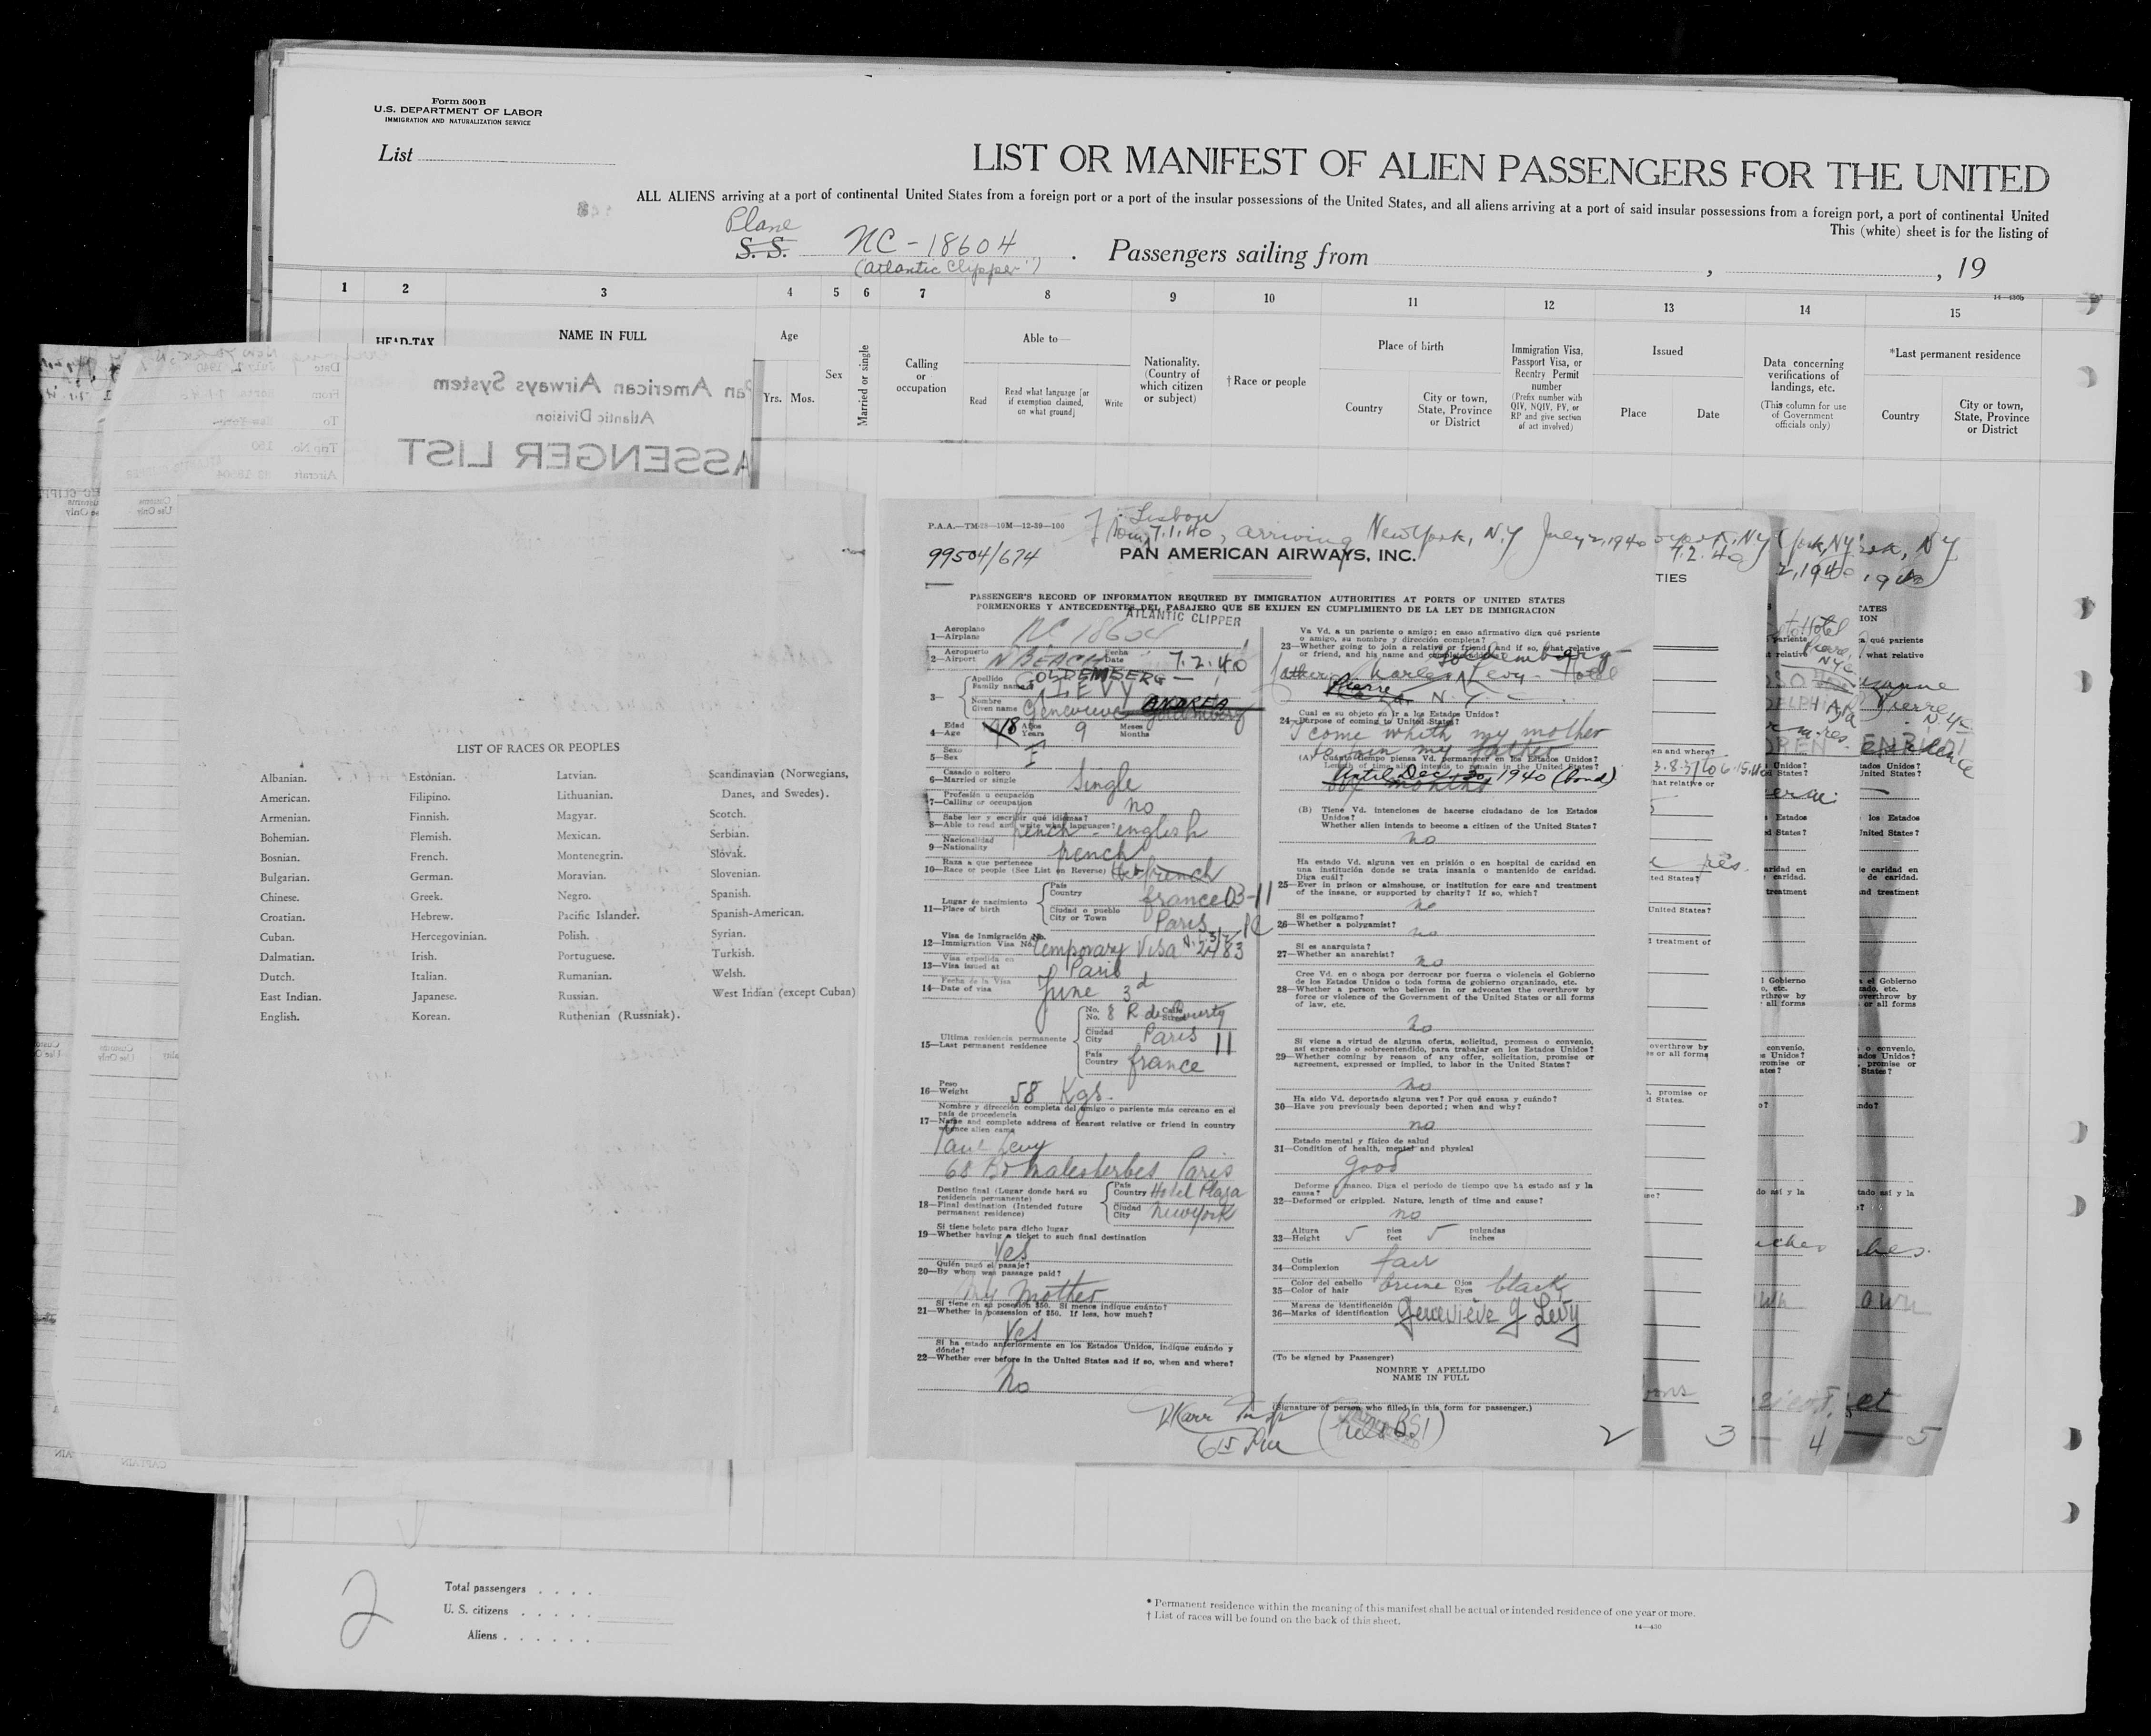 Form 500B
U.S. DEPARTMENT OF LABOR
IMMIGRATION AND NATURALIZATION SERVICE
List
LIST OR MANIFEST OF ALIEN PASSENGERS FOR THE UNITED
ALL ALIENS arriving at a port of continental United States from a foreign port or a port of the insular possessions of the United States, and all aliens arriving at a port of said insular possessions from a foreign port, a port of continental United
This (white) sheet is for the listing of
Plane
S. S. NC-18604 . Passengers sailing from , , 19
("Atlantic Clipper")
14—430b
1 2 3 4 5 6 7 8 9 10 11 12 13 14 15
HEAD-TAX
NAME IN FULL
Age
Yrs. Mos.
Sex
Married or single
Calling or occupation
Able to—
Read
Read what language [or if exemption claimed, on what ground]
Write
Nationality. (Country of which citizen or subject)
†Race or people
Place of birth
Country
City or town, State, Province or District
Immigration Visa, Passport Visa, or Reentry Permit number
(Prefix number with QIV, NQIV, PV, or RP and give section of act involved)
Issued
Place
Date
Data concerning verifications of landings, etc.
(This column for use of Government officials only)
*Last permanent residence
Country
City or town, State, Province or District
Pan American Airways System
Atlantic Division
ASSENGER LIST
Date July 2, 1940
From
To
Trip No. 150
Aircraft
LIST OF RACES OR PEOPLES
Albanian. Estonian. Latvian. Scandinavian (Norwegians, Danes, and Swedes).
American. Filipino. Lithuanian.
Armenian. Finnish. Magyar. Scotch.
Bohemian. Flemish. Mexican. Serbian.
Bosnian. French. Montenegrin. Slovak.
Bulgarian. German. Moravian. Slovenian.
Chinese. Greek. Negro. Spanish.
Croatian. Hebrew. Pacific Islander. Spanish-American.
Cuban. Hercegovinian. Polish. Syrian.
Dalmatian. Irish. Portuguese. Turkish.
Dutch. Italian. Rumanian. Welsh.
East Indian. Japanese. Russian. West Indian (except Cuban)
English. Korean. Ruthenian (Russniak).
P.A.A.—TM-28—10M—12-39—100
Lisbon
From 7.1.40, arriving New York, N.Y July 2, 1940
99504/674
PAN AMERICAN AIRWAYS, INC.
PASSENGER'S RECORD OF INFORMATION REQUIRED BY IMMIGRATION AUTHORITIES AT PORTS OF UNITED STATES
PORMENORES Y ANTECEDENTES DEL PASAJERO QUE SE EXIJEN EN CUMPLIMIENTO DE LA LEY DE IMMIGRACION
ATLANTIC CLIPPER
Aeroplano
1—Airplane NC 18604
Aeropuerto Fecha
2—Airport N BEACH Date 7.2.40
GOLDEMBERG —
Apellido
Family name LEVY
3—
Nombre ANDREA
Given name Genevieve Goldemberg
Edad Años Meses
4—Age 18 Years 9 Months
Sexo
5—Sex F
Casado o soltero
6—Married or single Single
Profesión u ocupación
7—Calling or occupation no
Sabe leer y escribir qué idiomas?
8—Able to read and write what languages? french - english
Nacionalidad
9—Nationality french
Raza a que pertenece
10—Race or people (See List on Reverse) Heb french
Lugar de nacimiento
11—Place of birth
País
Country france 03-11
Ciudad o pueblo
City or Town Paris
Visa de Inmigración No.
12—Immigration Visa No. temporary Visa 2483
Visa expedida en
13—Visa issued at Paris
Fecha de la Visa
14—Date of visa June 3d
Ultima residencia permanente
15—Last permanent residence
No. Calle
No. 8 R de Street
Ciudad
City Paris 11
País
Country france
Peso
16—Weight 58 Kgs.
Nombre y dirección completa del amigo o pariente más cercano en el país de procedencia
17—Name and complete address of nearest relative or friend in country whence alien came
Paul Levy
68 Bd Malesherbes Paris
Destino final (Lugar donde hará su residencia permanente)
18—Final destination (Intended future permanent residence)
País
Country Hotel Plaza
Ciudad
City New York
Si tiene boleto para dicho lugar
19—Whether having a ticket to such final destination
Yes
Quién pagó el pasaje?
20—By whom was passage paid?
My Mother
Si tiene en su posesión $50. Si menos indique cuánto?
21—Whether in possession of $50. If less, how much?
Yes
Si ha estado anteriormente en los Estados Unidos, indique cuándo y dónde?
22—Whether ever before in the United States and if so, when and where?
No
Va Vd. a un pariente o amigo; en caso afirmativo diga qué pariente o amigo, su nombre y dirección completa?
23—Whether going to join a relative or friend, and if so, what relative or friend, and his name and complete address?
Goldemberg—
father Charles Levy - Hotel
Pierre N.Y
Cual es su objeto en ir a los Estados Unidos?
24—Purpose of coming to United States?
I come whith my mother
to join my father
(A) Cuánto tiempo piensa Vd. permanecer en los Estados Unidos?
Length of time alien intends to remain in the United States?
Until Dec 30, 1940 (bond)
six months
(B) Tiene Vd. intenciones de hacerse ciudadano de los Estados Unidos?
Whether alien intends to become a citizen of the United States?
no
Ha estado Vd. alguna ves en prisión o en hospital de caridad en una institución donde se trata insania o mantenido de caridad. Diga cuál?
25—Ever in prison or almshouse, or institution for care and treatment of the insane, or supported by charity? If so, which?
no
Si es polígamo?
26—Whether a polygamist? no
Si es anarquista?
27—Whether an anarchist? no
Cree Vd. en o aboga por derrocar por fuerza o violencia el Gobierno de los Estados Unidos o toda forma de gobierno organizado, etc.
28—Whether a person who believes in or advocates the overthrow by force or violence of the Government of the United States or all forms of law, etc.
no
Si viene a virtud de alguna oferta, solicitud, promesa o convenio, así expresado o sobreentendido, para trabajar en los Estados Unidos?
29—Whether coming by reason of any offer, solicitation, promise or agreement, expressed or implied, to labor in the United States?
no
Ha sido Vd. deportado alguna vez? Por qué causa y cuándo?
30—Have you previously been deported; when and why?
no
Estado mental y físico de salud
31—Condition of health, mental and physical
good
Deforme o manco. Diga el período de tiempo que ha estado así y la causa?
32—Deformed or crippled. Nature, length of time and cause?
no
Altura pies pulgadas
33—Height 5 feet 5 inches
Cutis
34—Complexion fair
Color del cabello Ojos
35—Color of hair brune Eyes black
Marcas de identificación
36—Marks of identification Geneviève G Levy
(To be signed by Passenger)
NOMBRE Y APELLIDO
NAME IN FULL
(Signature of person who filled in this form for passenger.)
6 15 PM
2 3 4 5
2
Total passengers . . . .
U. S. citizens . . . . .
Aliens . . . . . .
* Permanent residence within the meaning of this manifest shall be actual or intended residence of one year or more.
† List of races will be found on the back of this sheet.
14—430